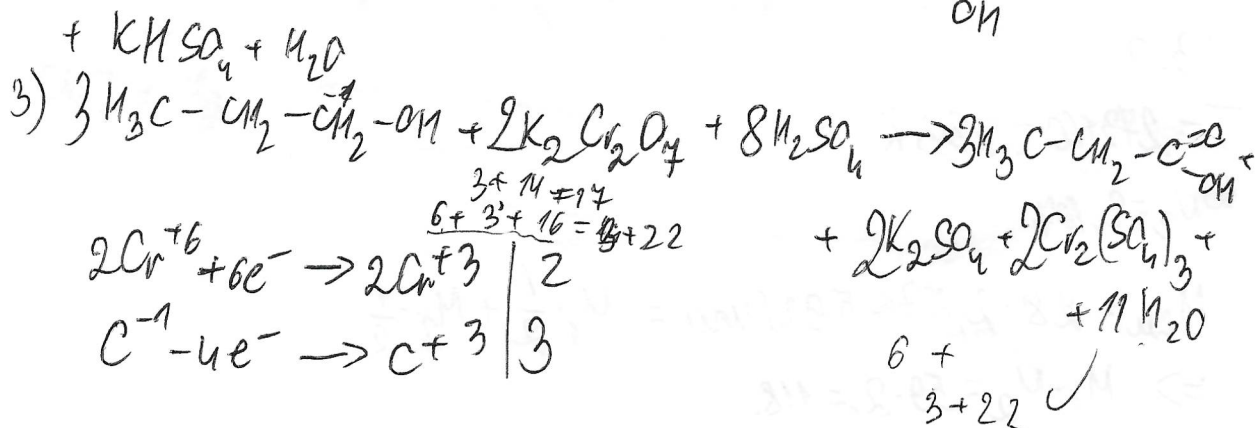 OH
+ KHSO₄ + H₂O
3) 3H₃C – CH₂ – C⁻¹H₂ – OH + 2K₂Cr₂O₇ + 8H₂SO₄ → 3H₃C – CH₂ – C=O –OH +
3 + 14 = 17
6 + 3 + 16 = +22
+ 2K₂SO₄ + 2Cr₂(SO₄)₃ +
+ 11H₂O
2Cr⁺⁶ + 6e⁻ → 2Cr⁺³ | 2
C⁻¹ – 4e⁻ → C⁺³ | 3
6 +
3 + 22 ✓